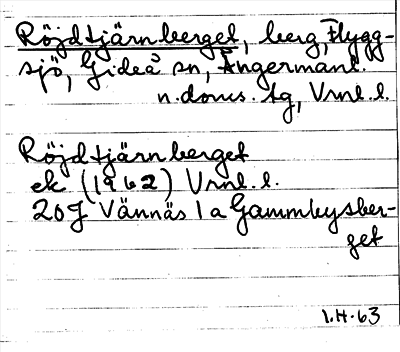 Röjdtjärnberget, berg, Flygg-
sjö, Gideå sn, Ångermanl.
n.doms. tg, Vrml. l.
Röjdtjärnberget
ek (1962) Vrnl. l.
20J Vännäs 1 a Gammbysber-
get
1.H.63